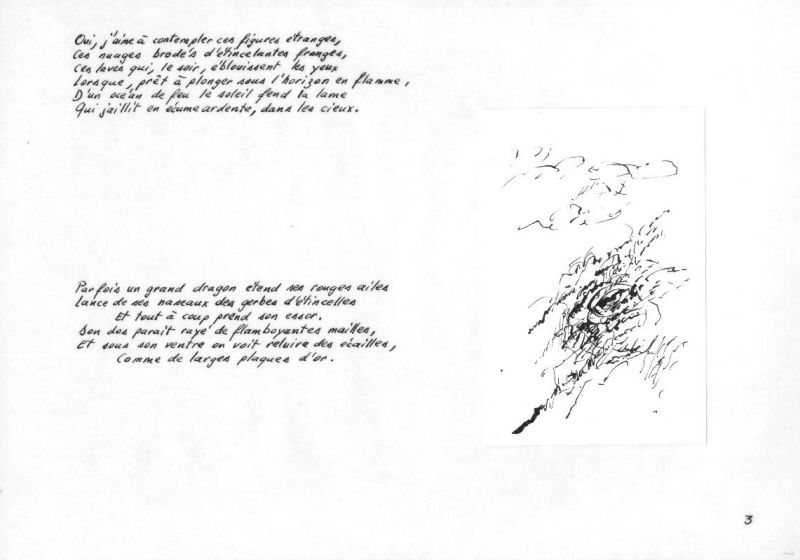 Oui, j'aime à contempler ces figures étranges,
Ces nuages brodés d'étincelantes franges,
Ces laves qui, le soir, éblouissent les yeux
Lorsque, prêt à plonger sous l'horizon en flamme,
D'un océan de feu le soleil fend ta lame
Qui jaillit en écume ardente, dans les cieux.
Parfois un grand dragon étend ses rouges ailes
lance de ses naseaux des gerbes d'étincelles
Et tout à coup prend son essor.
Son dos parait rayé de flamboyantes mailles,
Et sous son ventre on voit reluire des écailles,
Comme de larges plaques d'or.
3